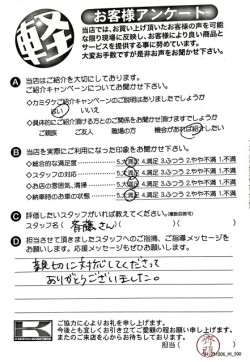 軽
お客様アンケート
当店では、お買い上げ頂いたお客様の声を可能
な限り現場に反映し、お客様により良い商品と
サービスを提供する事に努めています。
大変お手数ですが是非お声をお聞かせ下さい。
A 当店はご紹介を大切にしております。
ご紹介キャンペーンについてお聞かせ下さい。
◇カミタケご紹介キャンペーンのご説明はありましたでしょうか
はい いいえ
◇具体的にご紹介頂ける方とのご関係をお聞かせ頂けますでしょうか
ご親族 ご友人 職場の方 機会があれば紹介したい
B 当店を実際にご利用になった印象をお聞かせ下さい。
◇総合的な満足度 5.大満足 4.満足 3.ふつう 2.やや不満 1.不満
◇スタッフの対応 5.大満足 4.満足 3.ふつう 2.やや不満 1.不満
◇お店の雰囲気、清掃 5.大満足 4.満足 3.ふつう 2.やや不満 1.不満
◇納車時のお車の状態 5.大満足 4.満足 3.ふつう 2.やや不満 1.不満
C 評価したいスタッフがいれば教えてください。(複数回答可)
スタッフ名( 斉藤さん )( )( )
D 担当させて頂きましたスタッフへのご指摘、ご指導メッセージを
お願いします。応援メッセージもぜひお願いします。
親切に対応してくださって
ありがとうございました。
K
ご協力に心よりお礼を申し上げます。
今後とも宜しくお引き立てご愛顧の程お願い申し上げます。
またのご来店を心からお待ちしております。
担当( )